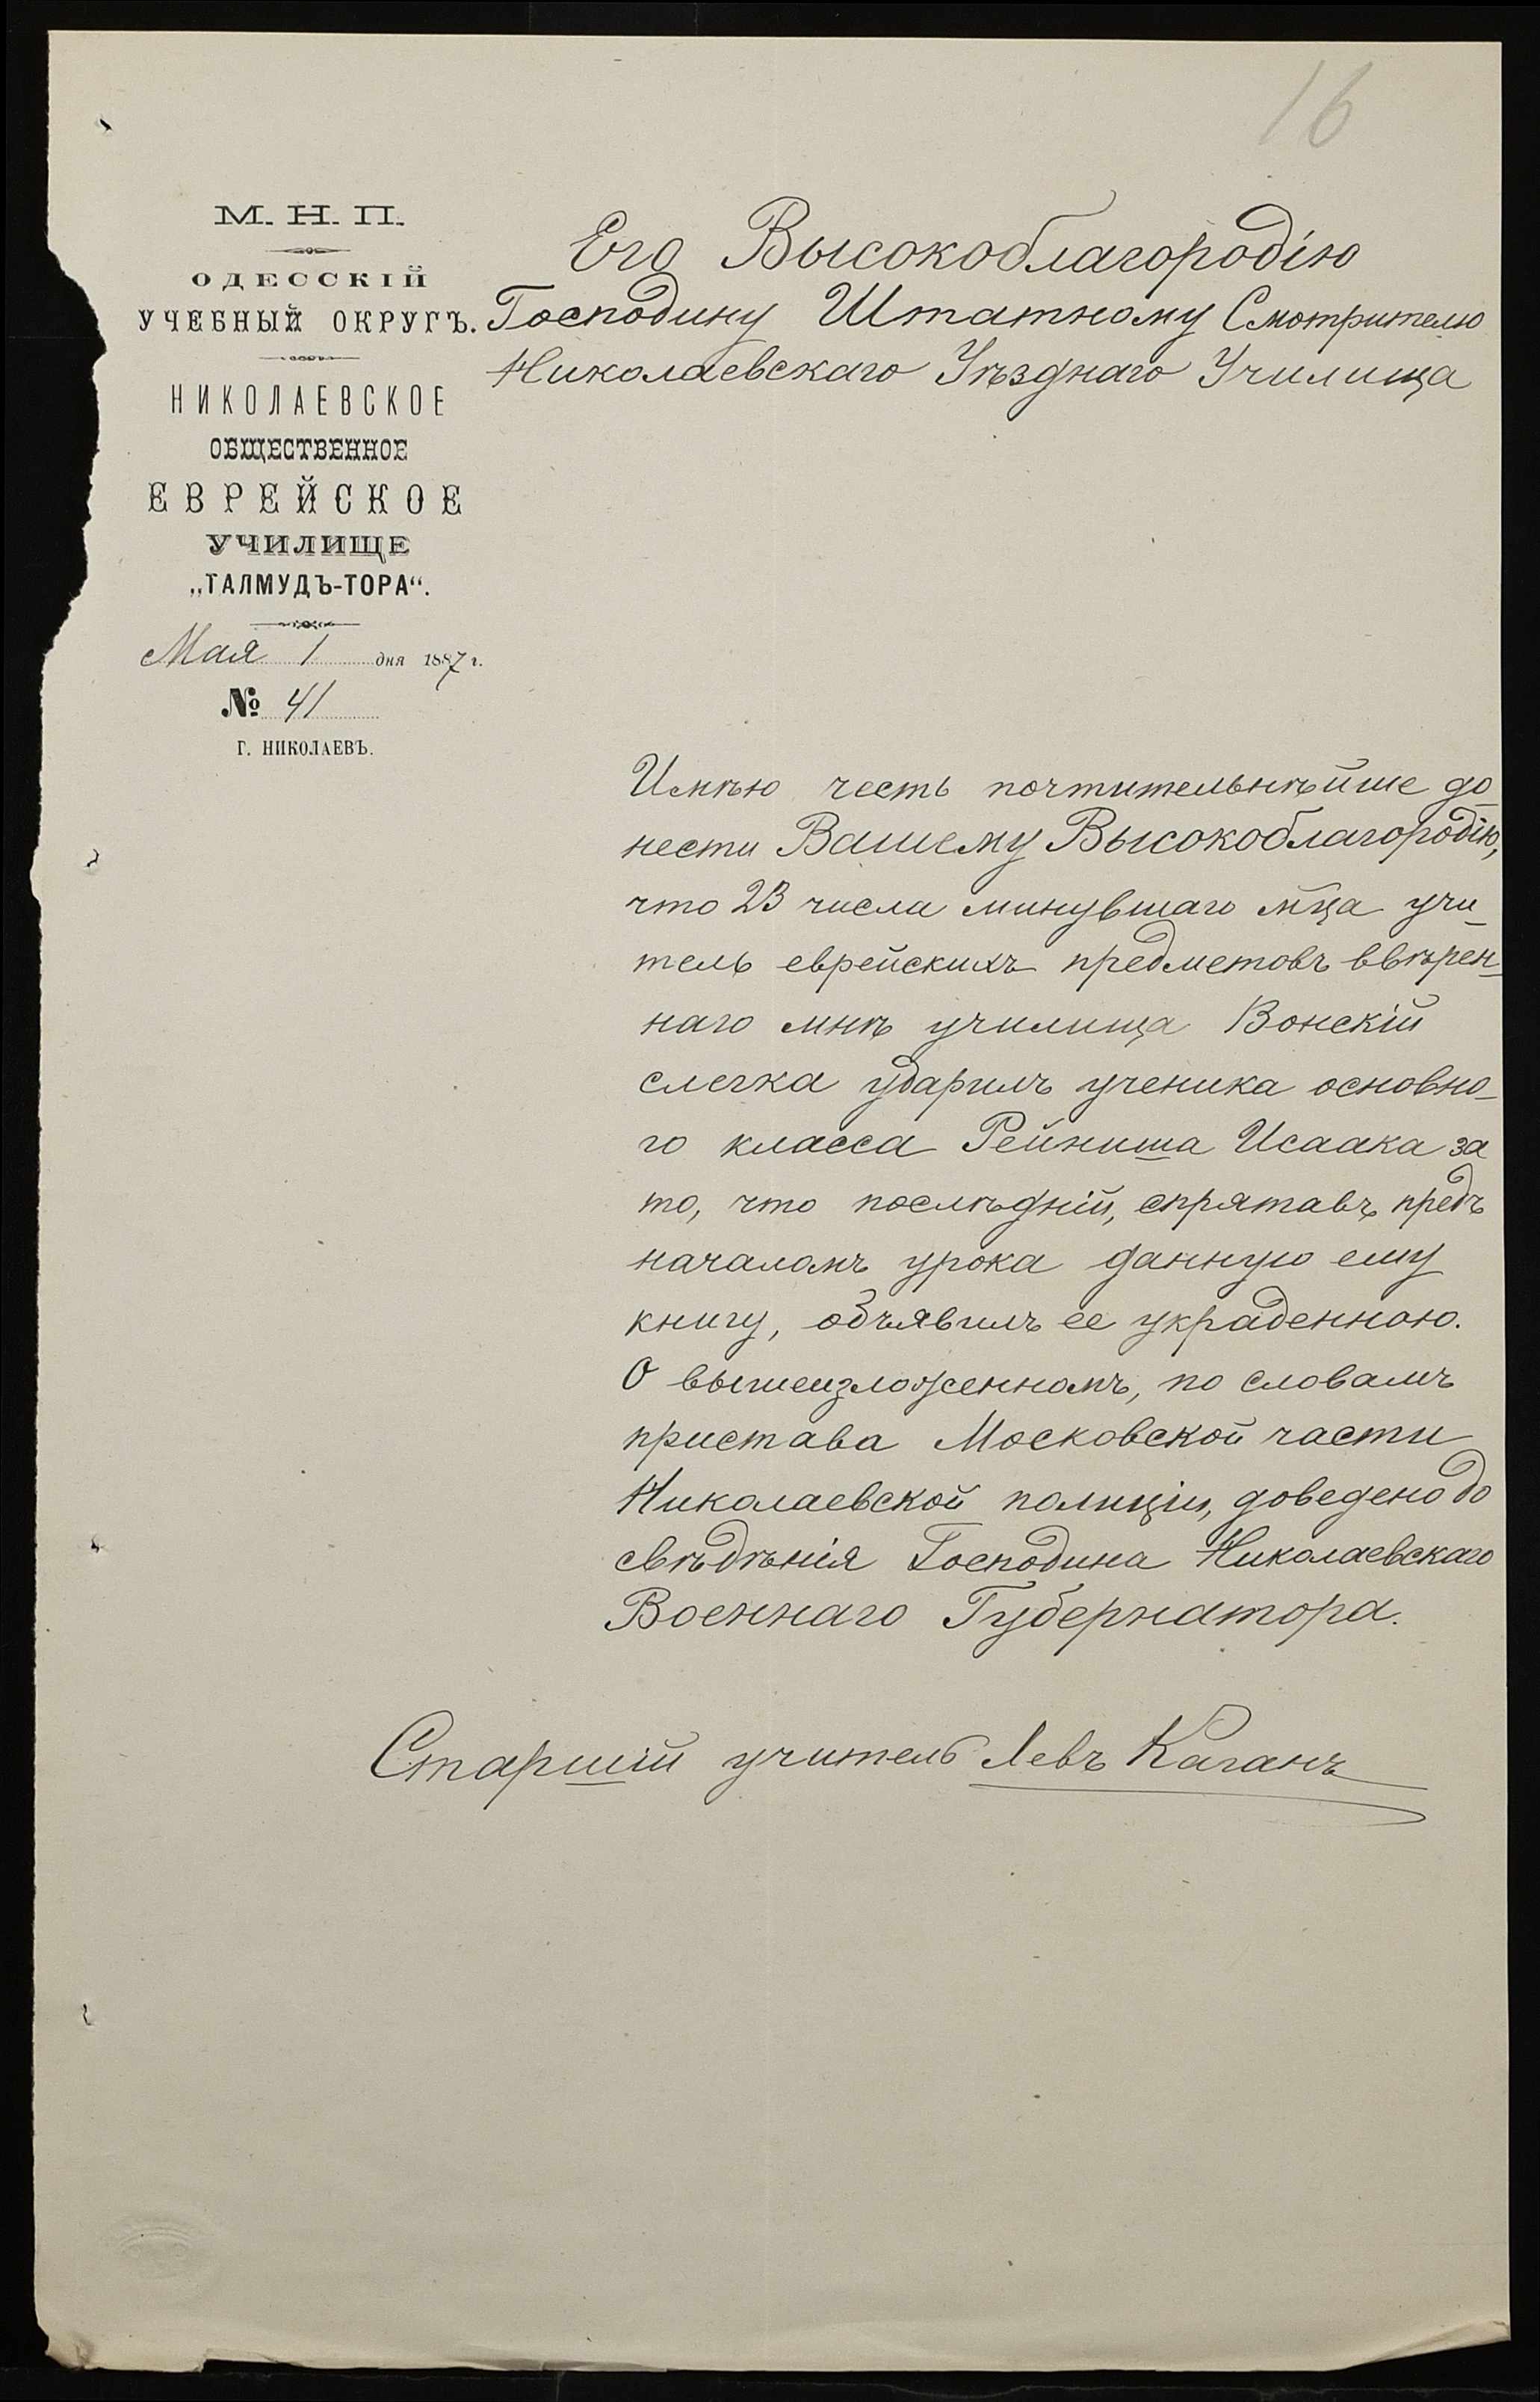 16
М. Н. П.
ОДЕССКІЙ
УЧЕБНЫЙ ОКРУГЪ.
НИКОЛАЕВСКОЕ
ОБЩЕСТВЕННОЕ
ЕВРЕЙСКОЕ
УЧИЛИЩЕ
„ТАЛМУДЪ-ТОРА“.
Мая 1 дня 1887 г.
№ 41
Г. НИКОЛАЕВЪ.
Его Высокоблагородію
Господину Штатному Смотрителю
Николаевскаго Уѣзднаго Училища
Имѣю честь почтительнѣйше до
нести Вашему Высокоблагородію,
что 23 числа минувшаго мца учи
тель еврейскихъ предметовъ ввѣрен
наго мнѣ училища Вонскій
слегка ударилъ ученика основно-
го класса Рейниша Исаака за
то, что послѣдній, спрятавъ предъ
началомъ урока данную ему
книгу, объявилъ ее украденною.
О вышеизложенномъ, по словамъ
пристава Московской части
Николаевской полиціи, доведено до
свѣдѣнія Господина Николаевскаго
Военнаго Губернатора.
Старшій учитель Левъ Каганъ